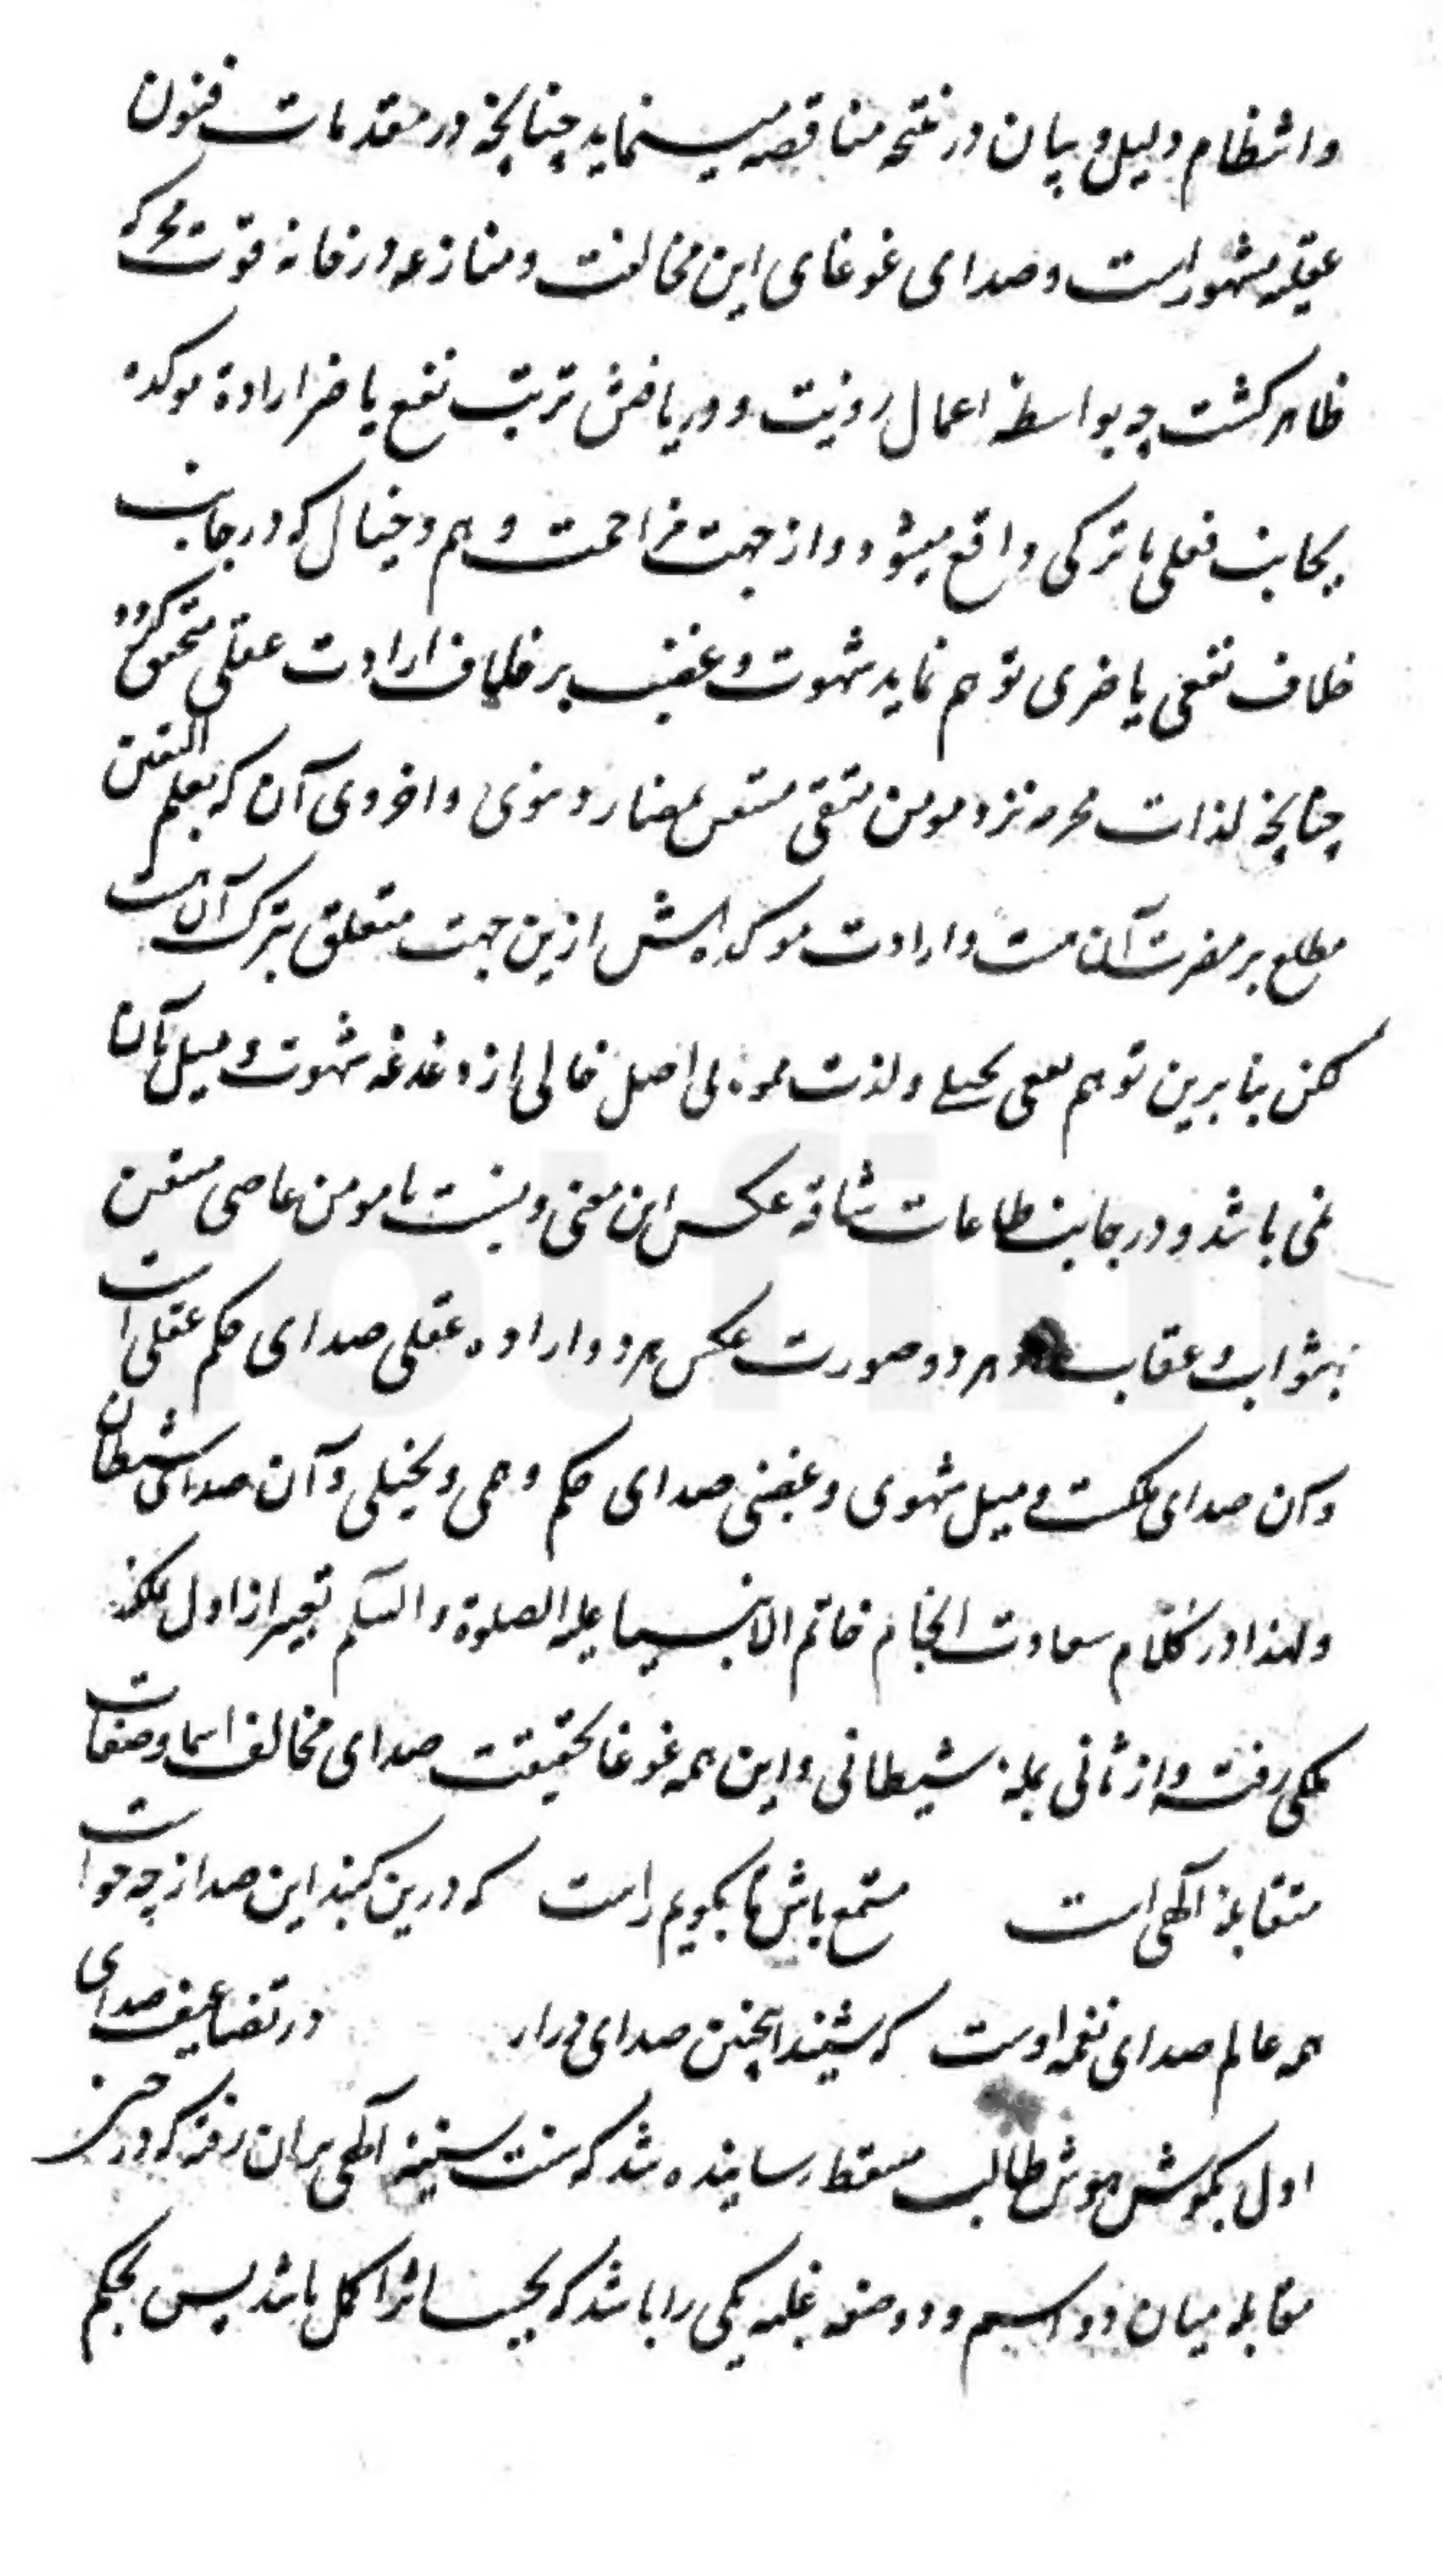 وانتظام دلیل و بیان در نتیجه مناقضه مینماید چنانچه در مقدمات فنون
عقلیه مشهور است و صدای غوغای این مخالفت و منازعه در خانه قوت محرکه
ظاهر کشت چه بواسطه اعمال رویت و دریافتن ترتب نفع یا ضر اراده موکده
بجانب فعلی یا ترکی واقع میشود و از جهت مزاحمت وهم و خیال که در جانب
خلاف نفعی یا ضری توهم نماید شهوت و غضب بر خلاف ارادت عقلی متحقق کردد
چنانچه لذات محرمه نزد مومن متقی مستیقن بمضار دنیوی و اخروی آن که بعلم الیقین
مطلع بر مضرت آن است و ارادت موکده اش ازین جهت متعلق بترک آن است
لکن بنا برین توهم نفعی تخیلی و لذت بی اصل خالی از دغدغه شهوت و میل بآن
نمی باشد و در جانب طاعات شاقه عکس این معنی و نسبت با مومن عاصی مستیقن
بثواب و عقاب هر دو صورت عکس هر دو اراده عقلی صدای حکم عقلی است
و آن صدای ملکست و میل شهوی و غضبی صدای حکم وهمی و تخیلی و آن صدای شیطان
و لهذا در کلام سعادت انجام خاتم الانبیا علیه الصلوة والسلم تعبیر از اول بلمه
ملکی رفته و از ثانی بلمه شیطانی و این همه غوغا بحقیقت صدای مخالف اسما و صفات
متقابله آلهی است مستمع باش تا بکویم راست که درین کنبد این صدا ز چه خواست
همه عالم صدای نغمه اوست که شنید اینچنین صدای دراز در تضاعیف صدای
اول بکوش هوش طالب متیقظ رسانیده شد که سنت سنیه آلهی بران رفته که در حین
مقابله میان دو اسم و دو صفة غلبه یکی را باشد که بحسب اثر اکمل باشد پس بحکم